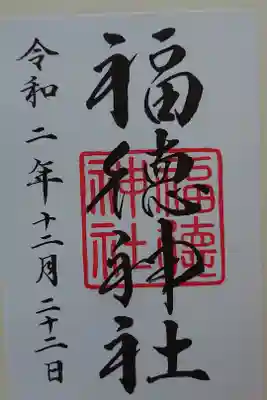 福徳神社
福德
神社
令和二年十二月二十二日